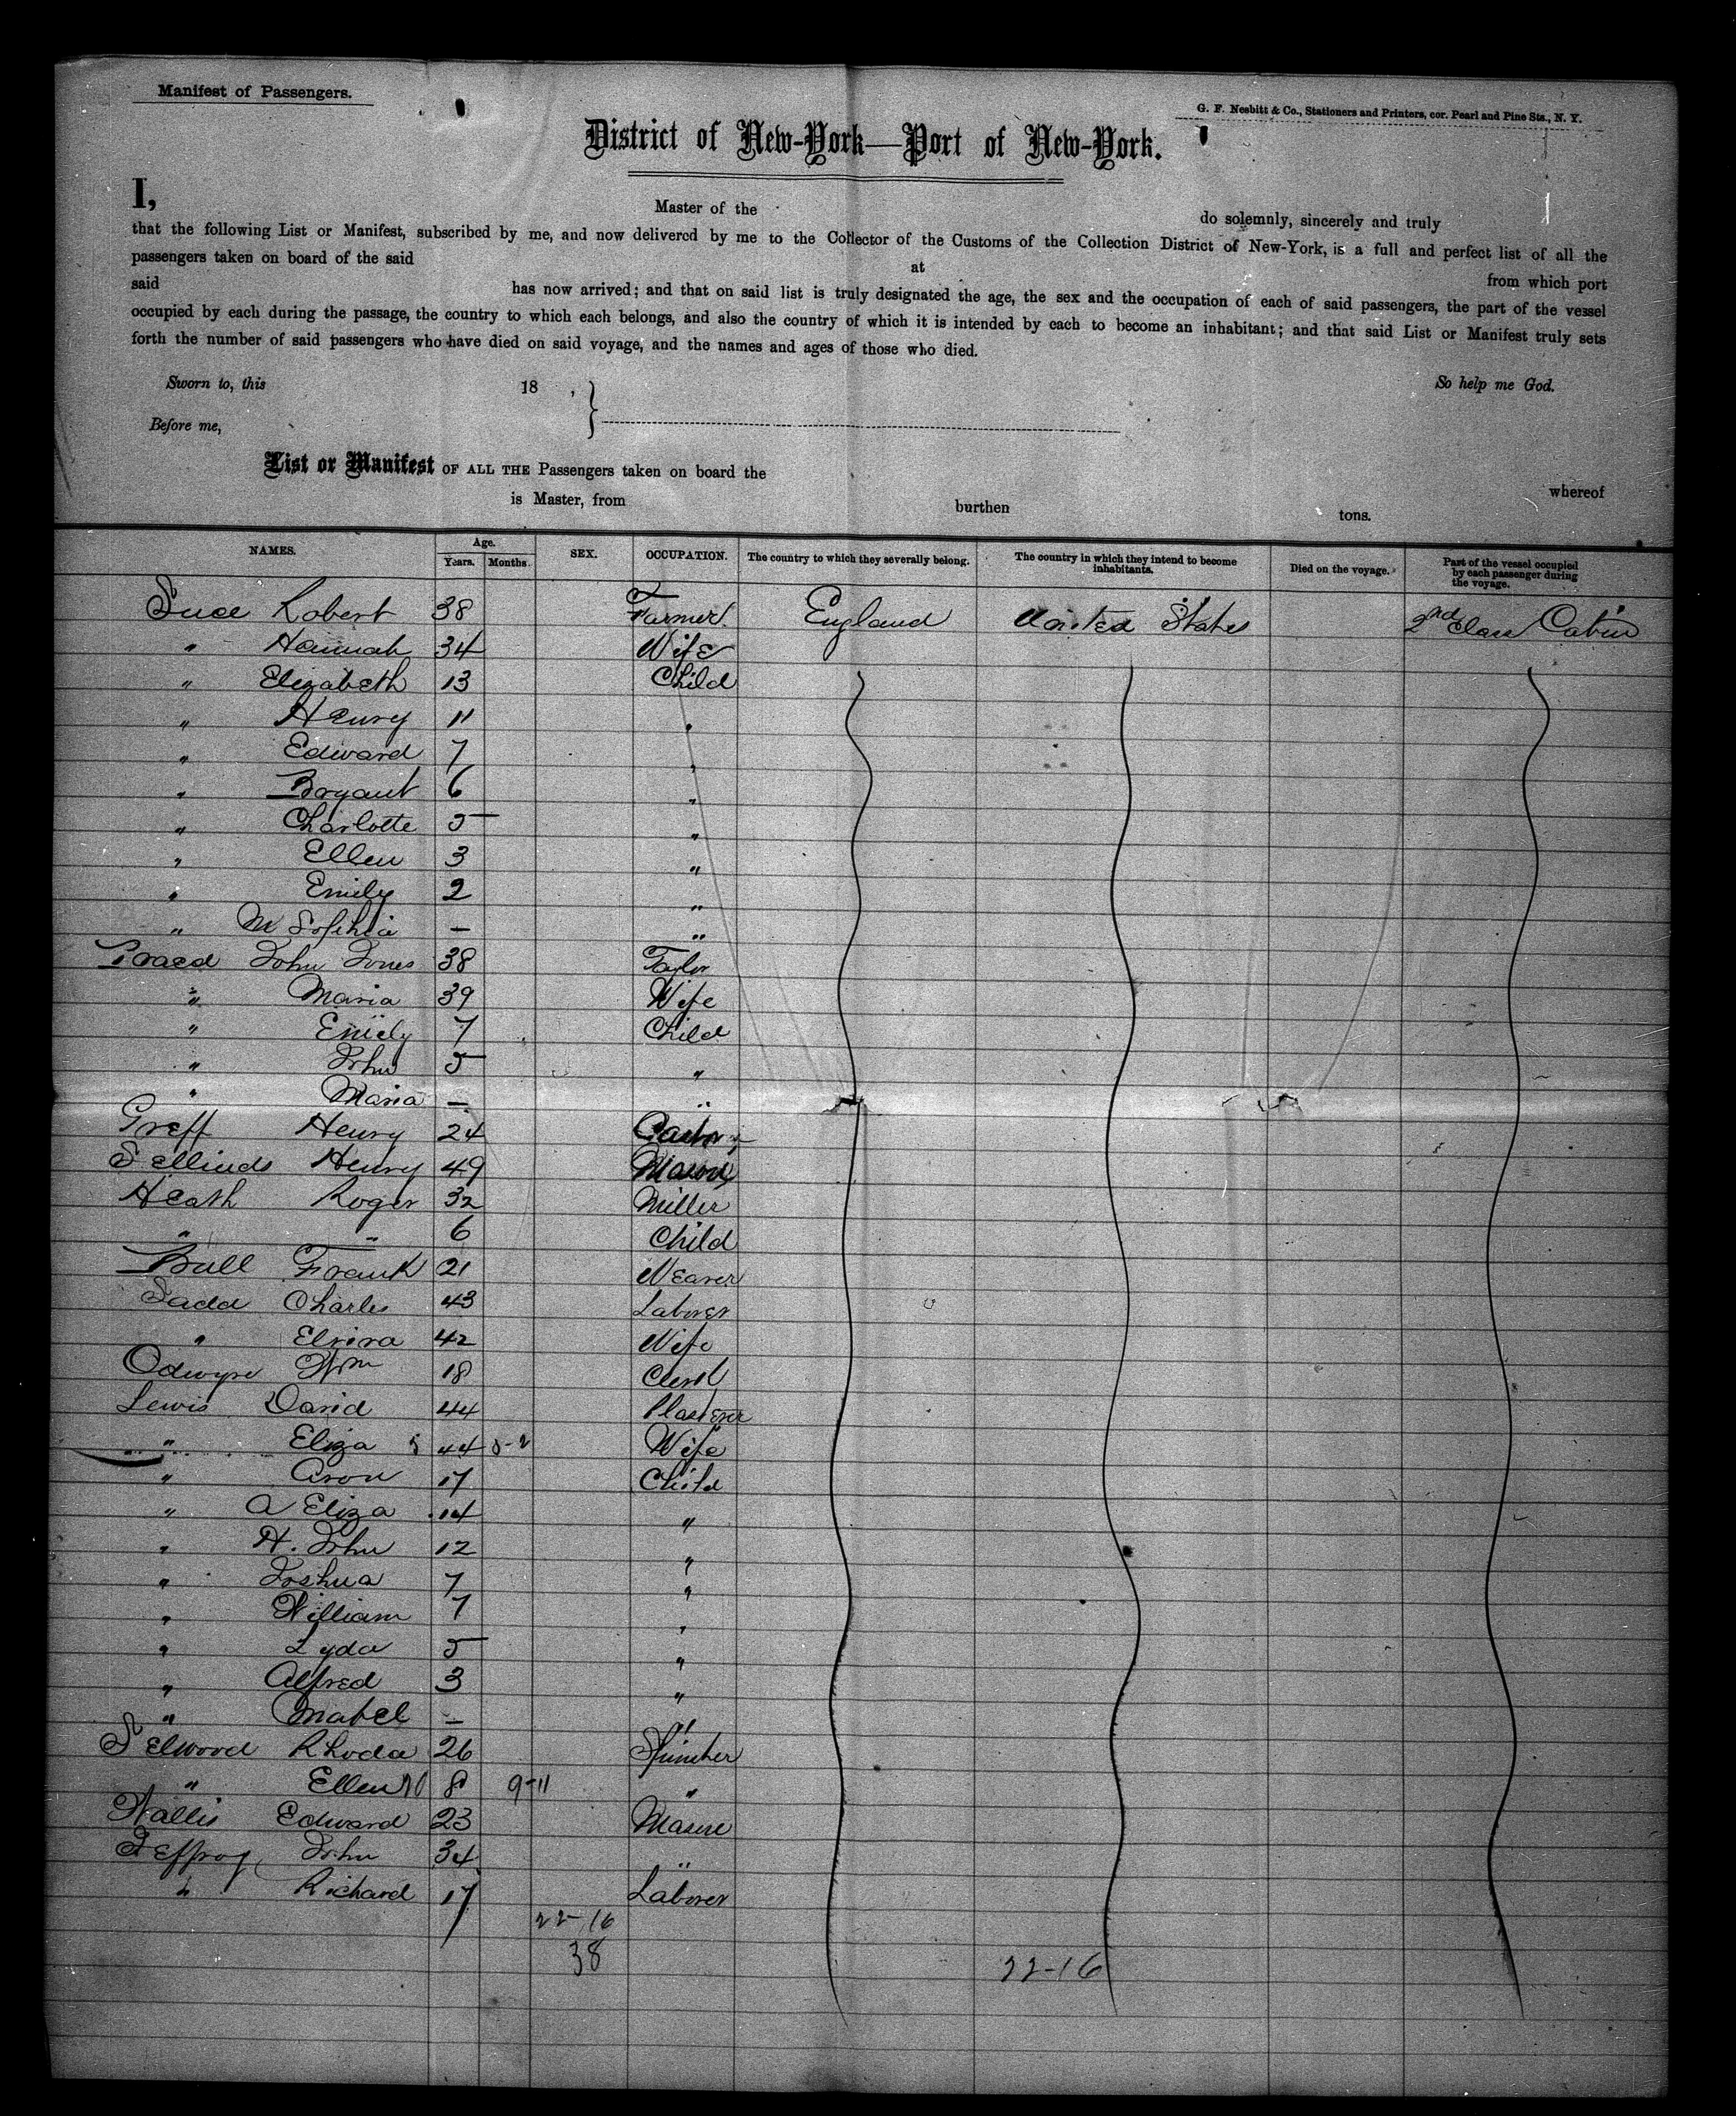 Manifest of Passengers.
G. F. Nesbitt & Co., Stationers and Printers, cor. Pearl and Pine Sts., N. Y.
District of New-York—Port of New-York.
I, Master of the do solemnly, sincerely and truly
that the following List or Manifest, subscribed by me, and now delivered by me to the Collector of the Customs of the Collection District of New-York, is a full and perfect list of all the
passengers taken on board of the said at from which port
said has now arrived; and that on said list is truly designated the age, the sex and the occupation of each of said passengers, the part of the vessel
occupied by each during the passage, the country to which each belongs, and also the country of which it is intended by each to become an inhabitant; and that said List or Manifest truly sets
forth the number of said passengers who have died on said voyage, and the names and ages of those who died.
Sworn to, this 18 , So help me God.
Before me,
List or Manifest OF ALL THE Passengers taken on board the whereof
is Master, from burthen tons.
NAMES. Age. Years. Months. SEX. OCCUPATION. The country to which they severally belong. The country in which they intend to become inhabitants. Died on the voyage. Part of the vessel occupied by each passenger during the voyage.
Robert 38 Farmer England United States 2nd Class Cabin
" Hannah 34 Wife
" Elizabeth 13 Child
" Henry 11 "
" Edward 7 "
" Bryant 6 "
" Charlotte 5 "
" Ellen 3 "
" Emily 2 "
" M Sophia — "
John Jones 38 Taylor
" Maria 39 Wife
" Emily 7 Child
" John 5 "
" Maria — "
Greff Henry 24
Henry 49 Mason
Heath Roger 32 Miller
" " 6 Child
Bull Frank 21 Weaver
Ladd Charles 43 Laborer
" 42 Wife
Wm 18 Clerk
Lewis David 44 Plasterer
" Eliza 44 Wife
" Aron 17 Child
" A Eliza 14 "
" H. John 12 "
" Joshua 7 "
" William 7 "
" Lyda 5 "
" Alfred 3 "
" Mabel — "
Selwood Rhoda 26
" Ellen 8 9-11 "
Wallis Edward 23
Jeffroy John 34 "
" Richard 17 Laborer
22-16
38 22-16